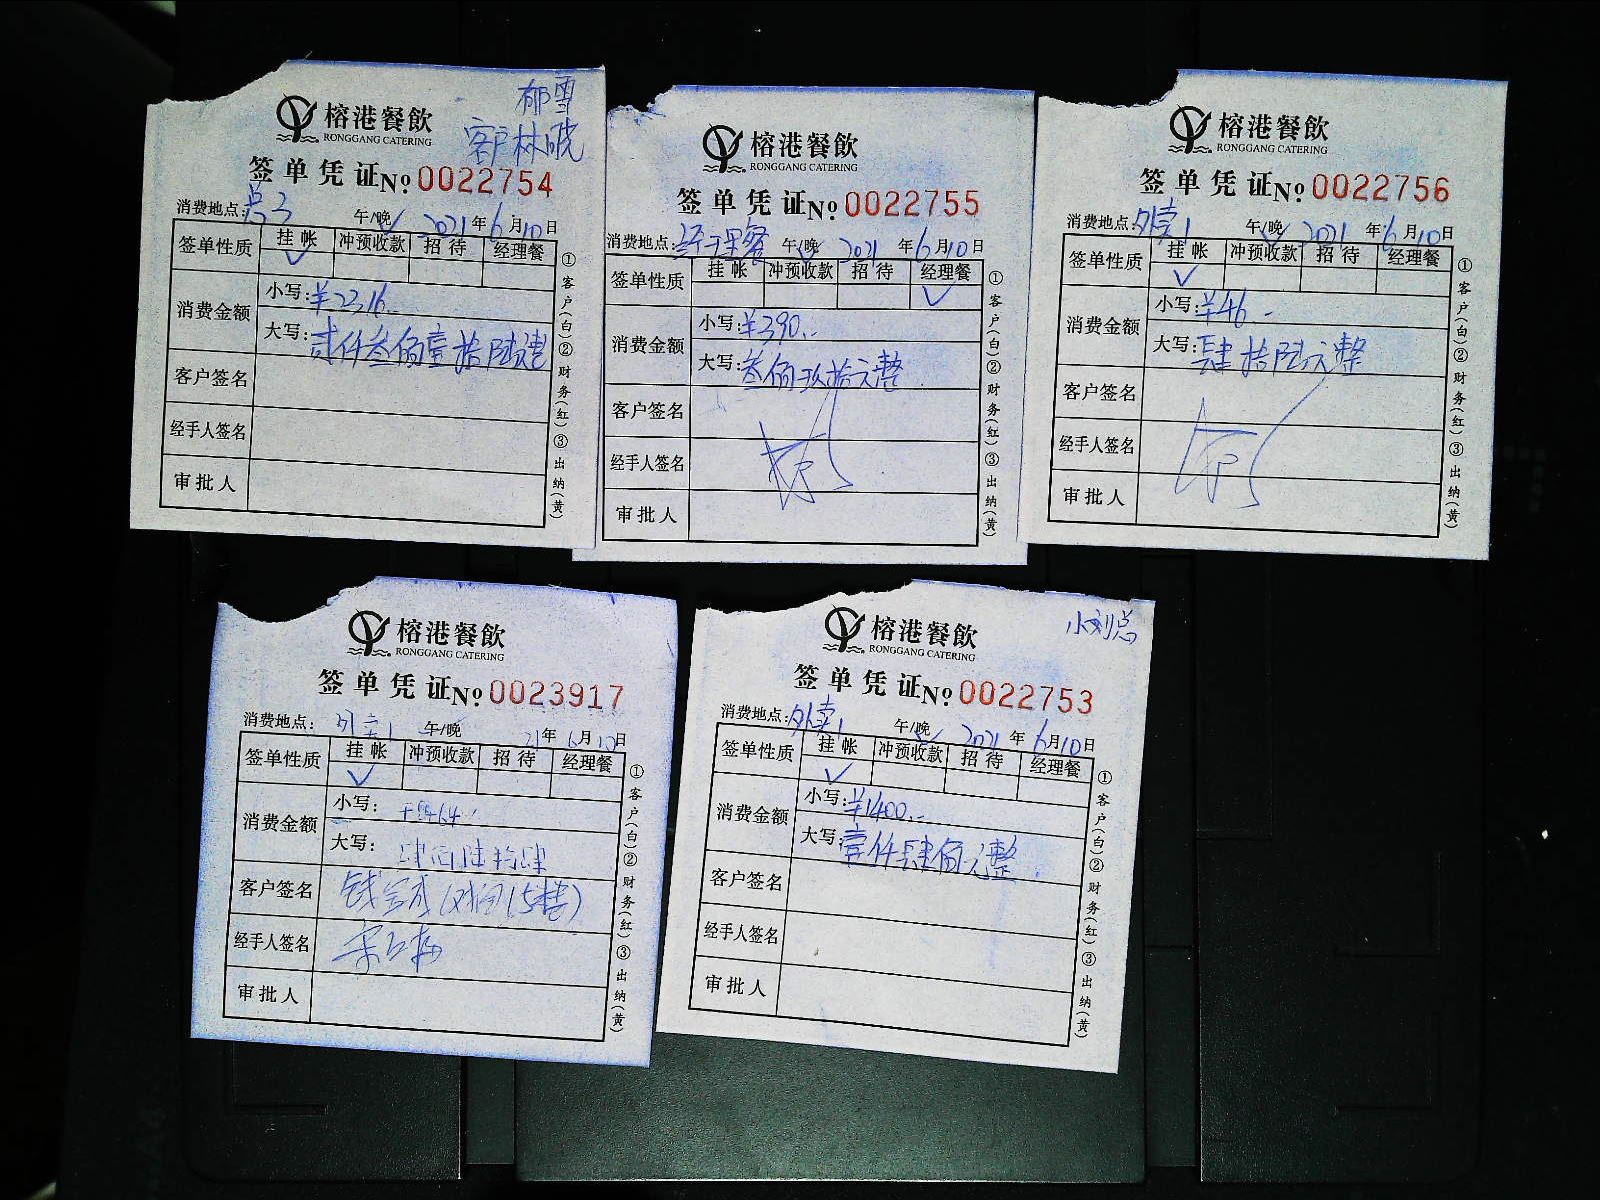 郁雪
客户林晓
榕港餐飲
RONGGANG CATERING
签单凭证 No 0022754
消费地点: 午/晚 2021年6月10日
签单性质 挂帐 冲预收款 招待 经理餐
✓
消费金额 小写:¥2316..
大写:贰仟叁佰壹拾陆元整
客户签名
经手人签名
审批人
①客户(白)②财务(红)③出纳(黄)
榕港餐飲
RONGGANG CATERING
签单凭证 No 0022755
消费地点:经理餐 午/晚 2021年6月10日
签单性质 挂帐 冲预收款 招待 经理餐
✓
消费金额 小写:¥390..
大写:叁佰玖拾元整
客户签名
经手人签名
审批人
①客户(白)②财务(红)③出纳(黄)
榕港餐飲
RONGGANG CATERING
签单凭证 No 0022756
消费地点:外卖1 午/晚 2021年6月10日
签单性质 挂帐 冲预收款 招待 经理餐
✓
消费金额 小写:¥46.-
大写:肆拾陆元整
客户签名
经手人签名
审批人
①客户(白)②财务(红)③出纳(黄)
榕港餐飲
RONGGANG CATERING
签单凭证 No 0023917
消费地点:外卖1 午/晚 21年6月10日
签单性质 挂帐 冲预收款 招待 经理餐
✓
消费金额 小写: 464..
大写:肆佰陆拾肆
客户签名
经手人签名
审批人
①客户(白)②财务(红)③出纳(黄)
小刘总
榕港餐飲
RONGGANG CATERING
签单凭证 No 0022753
消费地点:外卖1 午/晚 2021年6月10日
签单性质 挂帐 冲预收款 招待 经理餐
✓
消费金额 小写:¥1400..
大写:壹仟肆佰元整
客户签名
经手人签名
审批人
①客户(白)②财务(红)③出纳(黄)